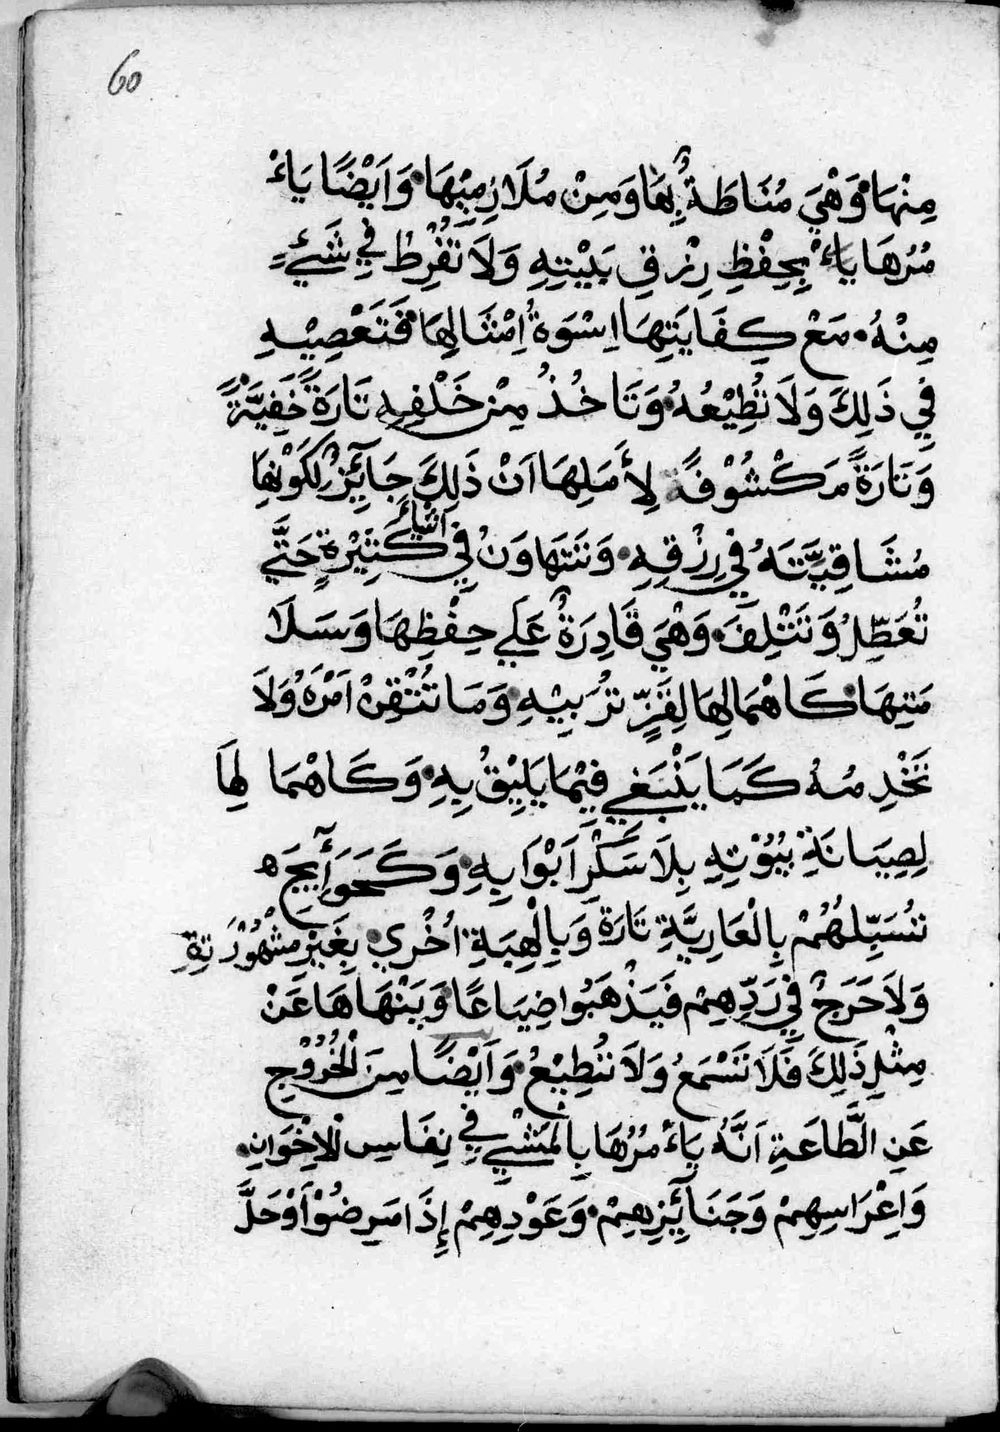 60
مِنْهَا وَهْيَ مُنَاطَةٌ بِهَا وَمِنْ مُلَازِمِيْهَا وَاَيْضًا يَاءْ
مُرُهَا يَاءْ بِحِفْظِ رِزْقِ بَيْتِهِ وَلَا تُفْرِطْ فِي شَيْءٍ
مِنْهُ مَعْ كِفَايَتِهَا اِسْوَةُ اِمْثَالِهَا فَتَعْصِيْهِ
فِي ذَلِكَ وَلَا تُطِيْعُهُ وَتَاخُذُ مِنْ خَلْفِهِ تَارَةً خَفِيَّةً
وَتَارَةً مَكْشُوْفَةً لِأَمَلِهَا اَنْ ذَلِكَ جَآئِزٌ لِكَوْنِهَا
مُشَاقِيَّتَهُ فِي رِزْقِهِ وَتَتَهَاوَنُ فِي اشياء كَثِيْرَةٍ حَتَّي
تُعَطِّلُ وَتَتْلِفَ وَهْيَ قَادِرَةٌ عَلَي حِفْظِهَا وَسَلَا
مَتِهَا كَاهْمَالِهَا لِقَزٍّ تُرَبِيْهِ وَمَا تُتْقِنْ اَمْرَهُ وَلَا
تَخْدِمُهُ كَمَا يَنْبَغِي فِيْمَا يَلِيْقُ بِهِ وَكَاهْمَا لِهَا
لِصِيَانَةِ بُيُوْتِهِ بِلَا سَكْرِ اَبْوَابِهِ وَكَحَوَآيِجَ
تُسَبِّلُهُمْ بِالْعَارِيَّةِ تَارَةً وَبِالْهِبَةِ اُخْرَي بِغَيْرِ مَشْهُوْرَتِهِ
وَلَا حَرَجٌ فِي رَدِّهِمْ فَيَذْهَبُوا ضِيَاعًا وَيَنْهَاهَا عَنْ
مِثْلِ ذَلِكَ فَلَا تَسْمَعُ وَلَا تُطِيْعُ وَاَيْضًا مِنَ الْخُرُوْجِ
عَنِ الطَّاعَةِ اَنَّهُ يَاءْمُرُهَا بِالْمَشْيِ فِي نِفَاسِ الْاِخْوَانِ
وَاِعْرَاسِهِمْ وَجَنَآئِزِهِمْ وَعَوْدِهِمْ إِذَا مَرِضُوْا اَوْحَلَّ